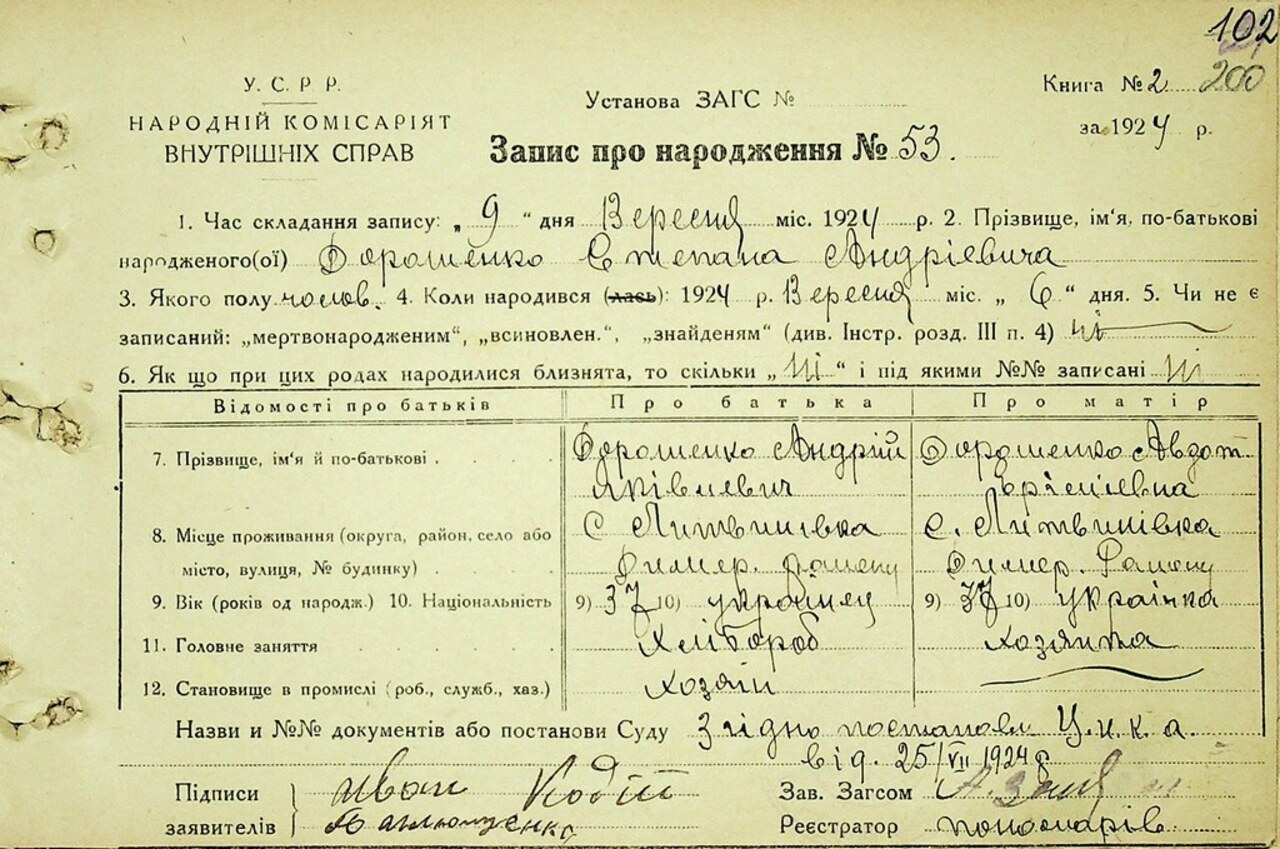 102
200
У. С. Р Р.
НАРОДНІЙ КОМІСАРІЯТ
ВНУТРІШНІХ СПРАВ
Установа ЗАГС №
Книга № 2
за 1924 р.
Запис про народження № 53.
1. Час складання запису: „ 9 “ дня Вересня міс. 1924 р. 2. Прізвище, ім'я, по-батькові
народженого(ої) Дорошенко Степана Андріевича
3. Якого полу чолов. 4. Коли народився (лась): 1924 р. Вересня міс. „ 6 “ дня. 5. Чи не є
записаний: „мертвонародженим“, „всиновлен.“, „знайденям“ (див. Інстр. розд. III п. 4) ні
6. Як що при цих родах народилися близнята, то скільки „ ні “ і під якими №№ записані ні
Відомості про батьків Про батька Про матір
7. Прізвище, ім'я й по-батькові . Дорошенко Андрій Дорошенко Авдот.
Яківлевич
8. Місце проживання (округа, район, село або С Литвинівка С. Литвинівка
місто, вулиця, № будинку) Димер. Району Димер. Району
9. Вік (років од народж.) 10. Національність 9) 37 10) українец 9) 37 10) українка
11. Головне заняття Хлібороб Хозяйка
12. Становище в промислі (роб., служб., хаз.) Хозяін
Назви и №№ документів або постанови Суду Згідно постанови Ц.и.к.а.
від. 25/VII 1924 р
Підписи Иван Кодій
заявителів
Зав. Загсом
Реєстратор